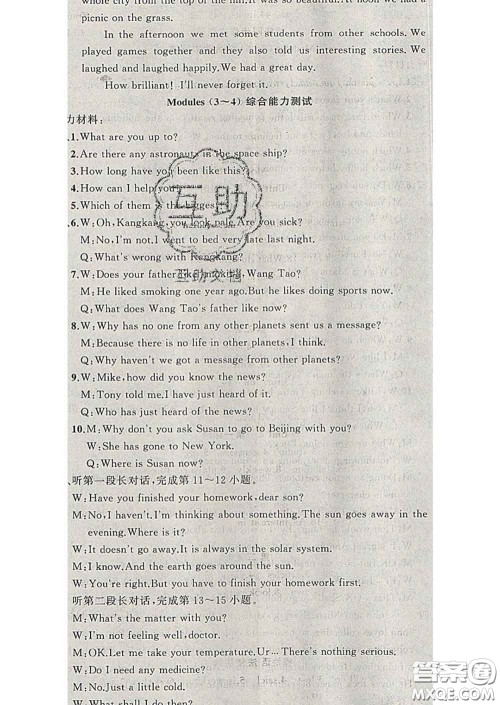 whole city from the hill. It was so beautiful. At noon we had a
picnic on the grass.
In the afternoon we met some students from other schools. We
played games together and they also told us interesting stories. We
laughed and laughed happily. We had a great day.
How brilliant! I'll never forget it.
Modules (3～4) 综合能力测试
力材料：
1. What are you up to?
2. Are there any astronauts in the space ship?
3. How long have you been like this?
4. How can I help you
5. Which of them is the biggest
6. W: Oh, Kangkang, you look pale. Are you sick?
M: No, I'm not. I went to bed very late last night.
Q: What's wrong with Kangkang?
7. W: Does your father like smoking, Wang Tao?
M: He liked smoking one year ago. But he likes doing sports now.
Q: What does Wang Tao's father like now?
8. W: Why has no one from any other planets sent us a message?
M: Because there is no life in other planets, I think.
Q: Why haven't we got a message from other planets?
9. W: Mike, how did you know the news?
M: Tony told me. I have just heard of it.
Q: Who has just heard of the news?
10. M: Why don't you ask Susan to go to Beijing with you?
W: She has gone to New York.
Q: Where is Susan now?
听第一段长对话，完成第 11～12 小题。
W: Have you finished your homework, dear son?
M: No, I haven't. I'm thinking about something. The sun goes away in the
evening. Where is it?
W: It doesn't go away. It is always in the solar system.
M: I know. And the earth goes around the sun.
W: You're right. But you have to finish your homework first.
听第二段长对话，完成第 13～15 小题。
M: What's the matter with you?
W: I'm not feeling well, doctor.
M: OK. Let me take your temperature. Ur… There's nothing serious.
W: Do I need any medicine?
M: No. Just a little cold.
W: What shall I do then?
互助
互助文档
答案圈
MXQE.COM